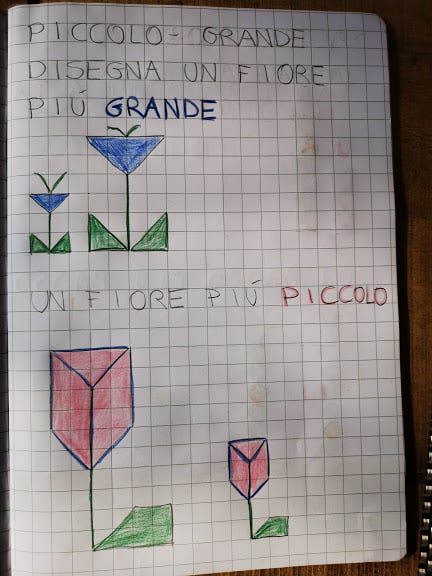 PICCOLO - GRANDE
DISEGNA UN FIORE
PIÚ GRANDE
UN FIORE PIÚ PICCOLO